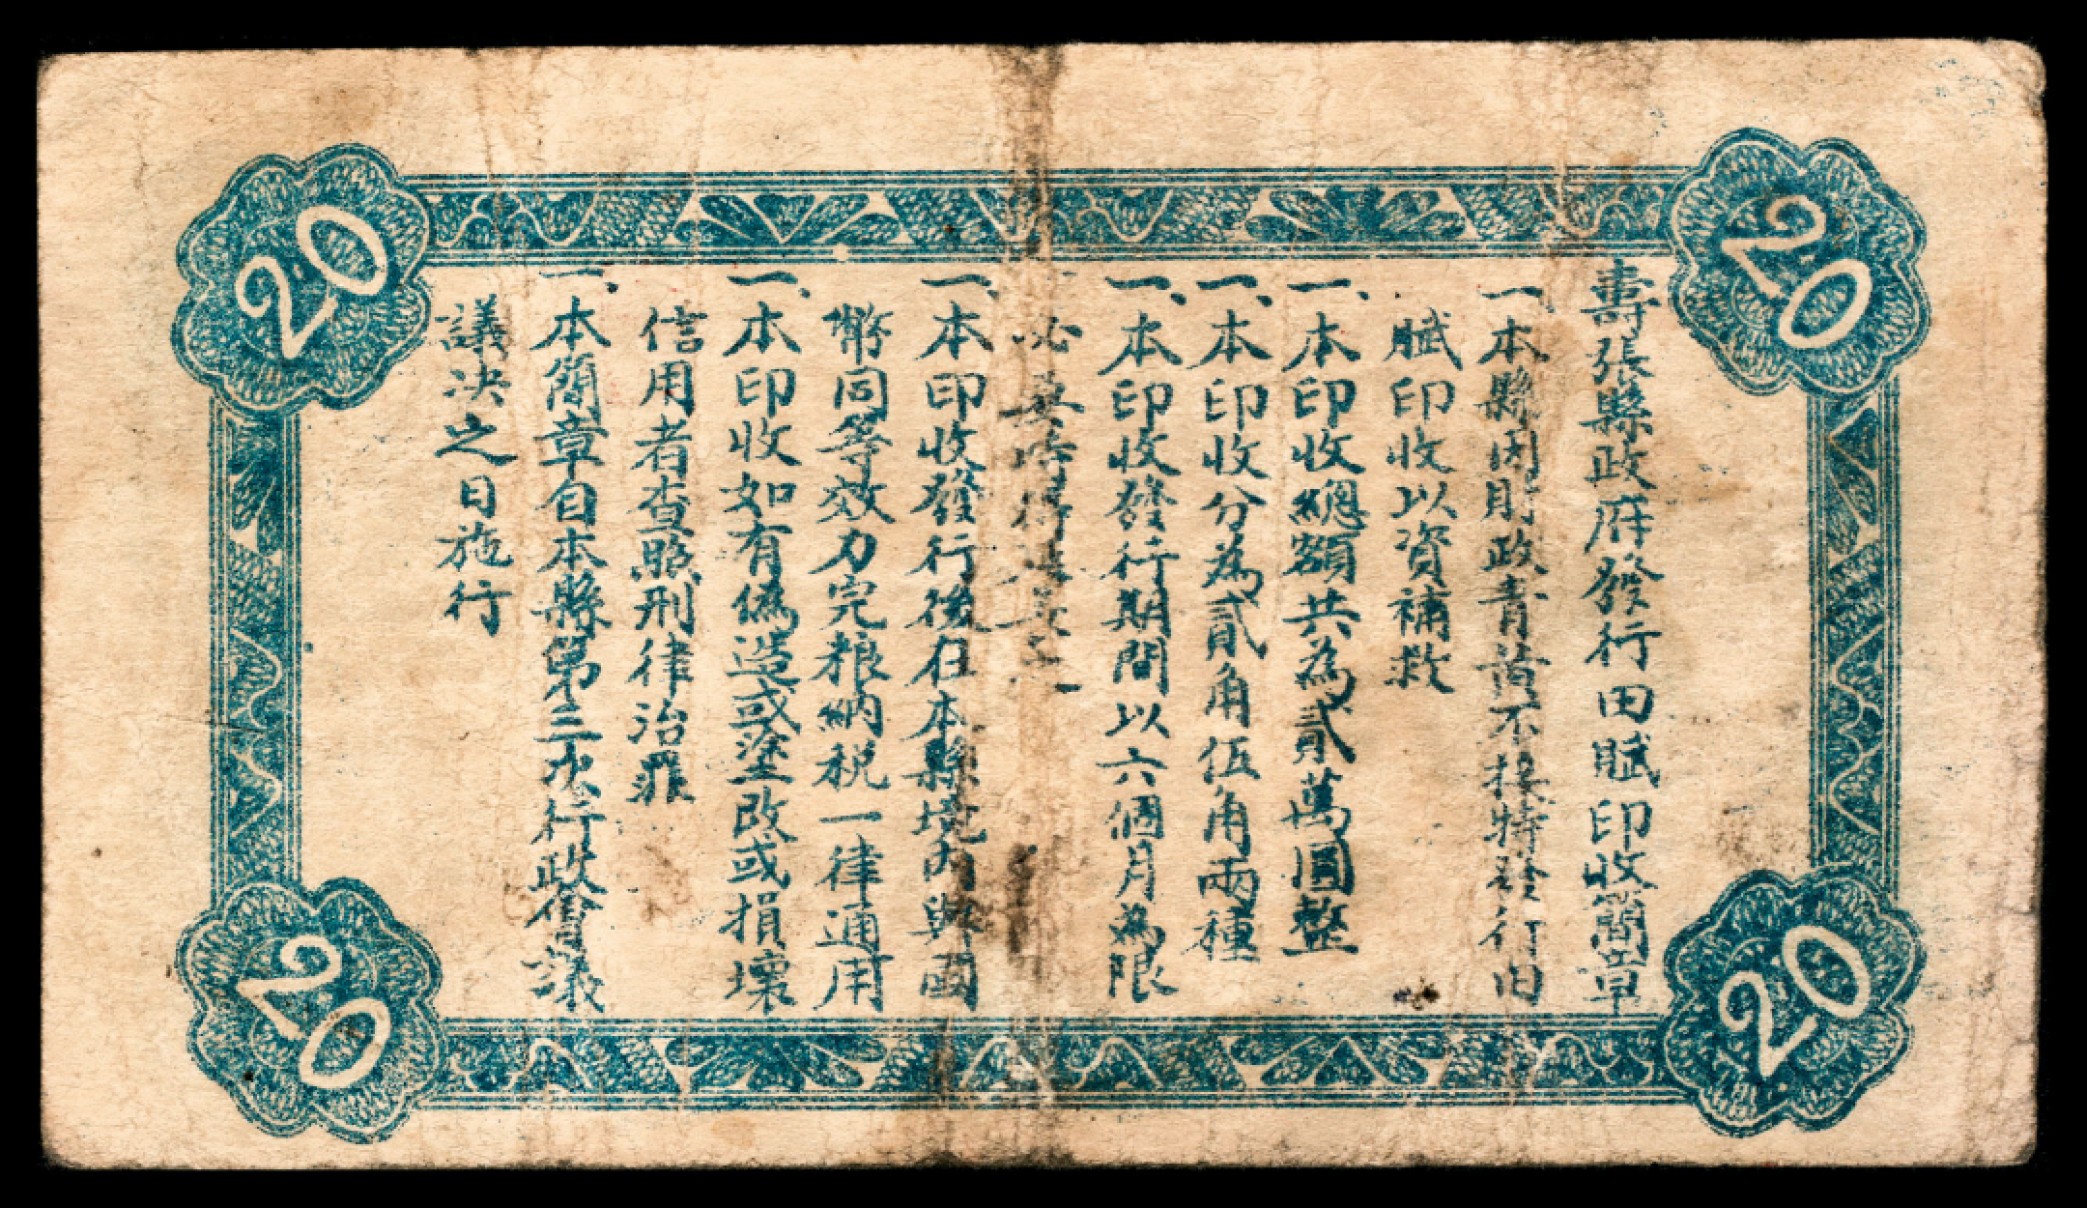 壽張縣政府發行田賦印收簡章
一、本縣因財政青黃不接特發行田
賦印收以資補救
一、本印收總額共為貳萬圓整
一、本印收分為貳角伍角兩種
一、本印收發行期間以六個月為限
必要時得延長之
一、本印收發行後在本縣境內與國
幣同等效力完粮納税一律通用
一、本印收如有偽造或塗改或損壞
信用者查照刑律治罪
一、本簡章自本縣第三次行政會議
議決之日施行
20
20
20
20